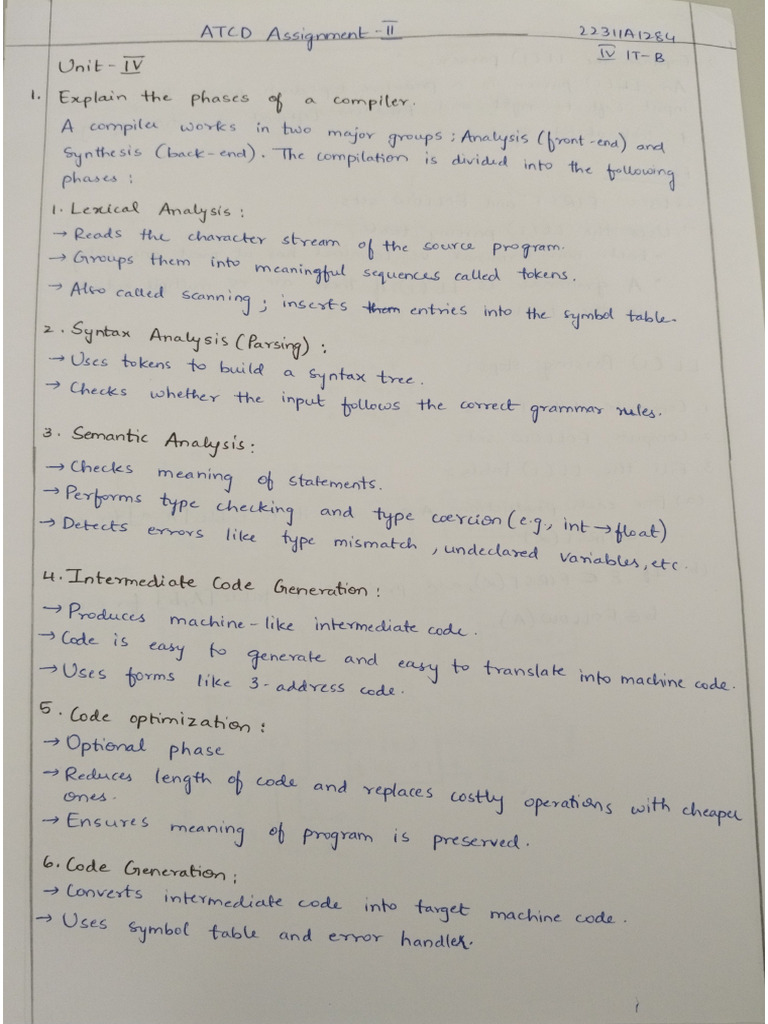 ATCD Assignment - II
22311A1284
IV IT-B
Unit - IV
1. Explain the phases of a compiler.
A compiler works in two major groups: Analysis (front-end) and
Synthesis (back-end). The compilation is divided into the following
phases:
1. Lexical Analysis:
→ Reads the character stream of the source program.
→ Groups them into meaningful sequences called tokens.
→ Also called scanning; inserts them entries into the symbol table.
2. Syntax Analysis (Parsing):
→ Uses tokens to build a syntax tree.
→ Checks whether the input follows the correct grammar rules.
3. Semantic Analysis:
→ Checks meaning of statements.
→ Performs type checking and type coercion (e.g., int → float)
→ Detects errors like type mismatch, undeclared variables, etc.
4. Intermediate Code Generation:
→ Produces machine-like intermediate code.
→ Code is easy to generate and easy to translate into machine code.
→ Uses forms like 3-address code.
5. Code optimization:
→ Optional phase
→ Reduces length of code and replaces costly operations with cheaper
ones.
→ Ensures meaning of program is preserved.
6. Code Generation:
→ Converts intermediate code into target machine code.
→ Uses symbol table and error handler.
1